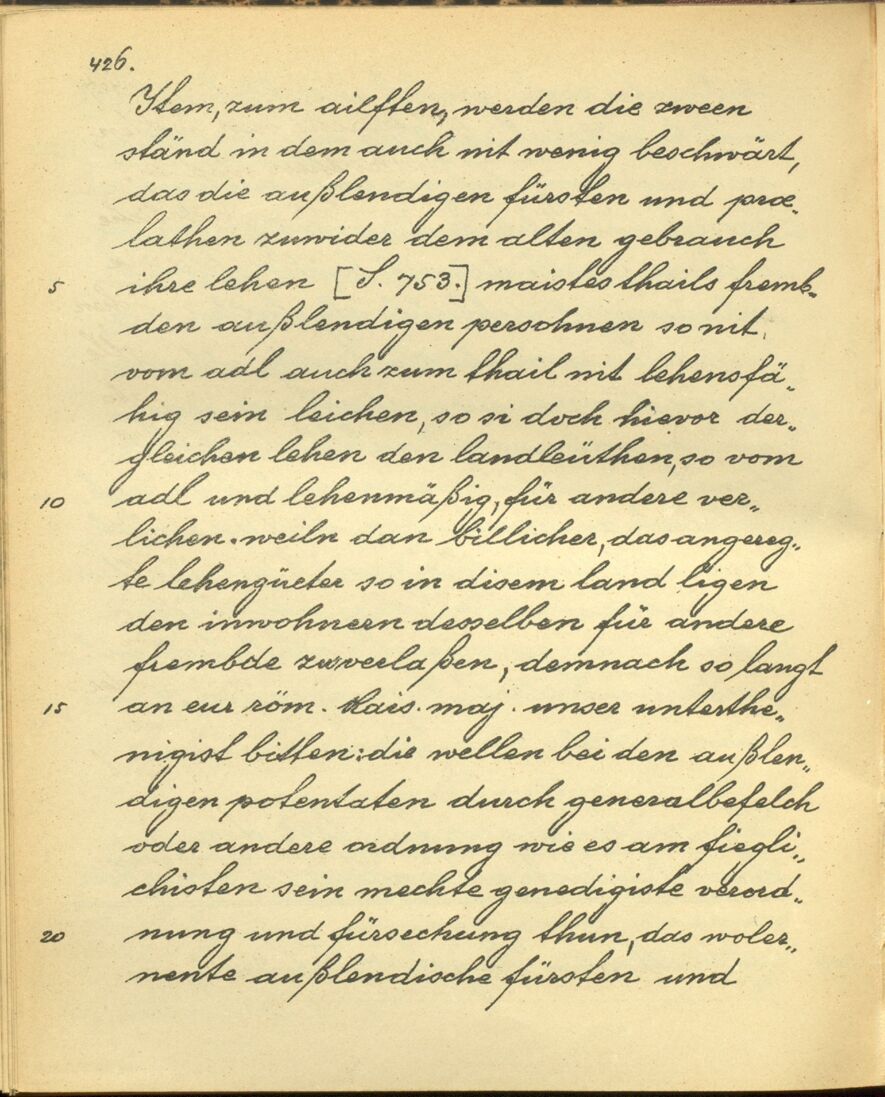 426.
Item, zum ailften, werden die zween
ständ in dem auch nit wenig beschwärt,
das die außlendigen fürsten und præ„
lathen zuwider dem alten gebrauch
5 ihre lehen [S. 753.] maistes thails fremb„
den außlendigen persohnen so nit
vom adl auch zum thail nit lehensfä„
hig sein leichen, so si doch hievor der„
gleichen lehen den landleüthen, so vom
10 adl und lehenmäßig, für andere ver„
lichen. weiln dan billicher, das angereg„
te lehengüeter so in disem land ligen
den inwohnern desselben für andere
frembde zuverlaßen, demnach so langt
15 an eur röm. Kais. maj. unser unterthe„
nigist bitten: die wellen bei den außlen„
digen potentaten durch generalbefelch
oder andere ordnung wie es am fiegli„
chisten sein mechte genedigiste verord„
20 nung und fürsechung thun, das woler„
nente außlendische fürsten und